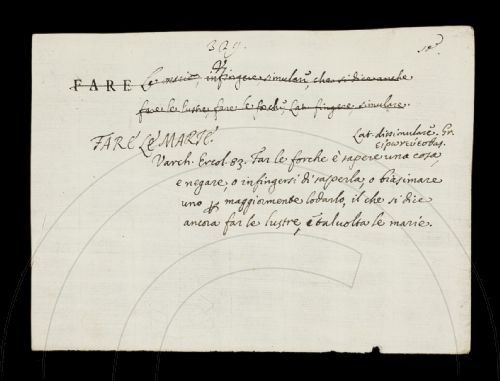 329.
FARE le marie, infingere simulare, che si dice anche
fare le lustre, fare le forche, Lat. fingere simulare.
FARE LE MARIE. Lat. dissimulare. Gr.
εἰρωνεύεσθαι.
Varch. Ercol. 83. Far le forche è sapere una cosa
e negare, o infingersi di saperla, o biasimare
uno per maggiormente lodarlo, il che si dice
ancora far le lustre, e talvolta le marie.